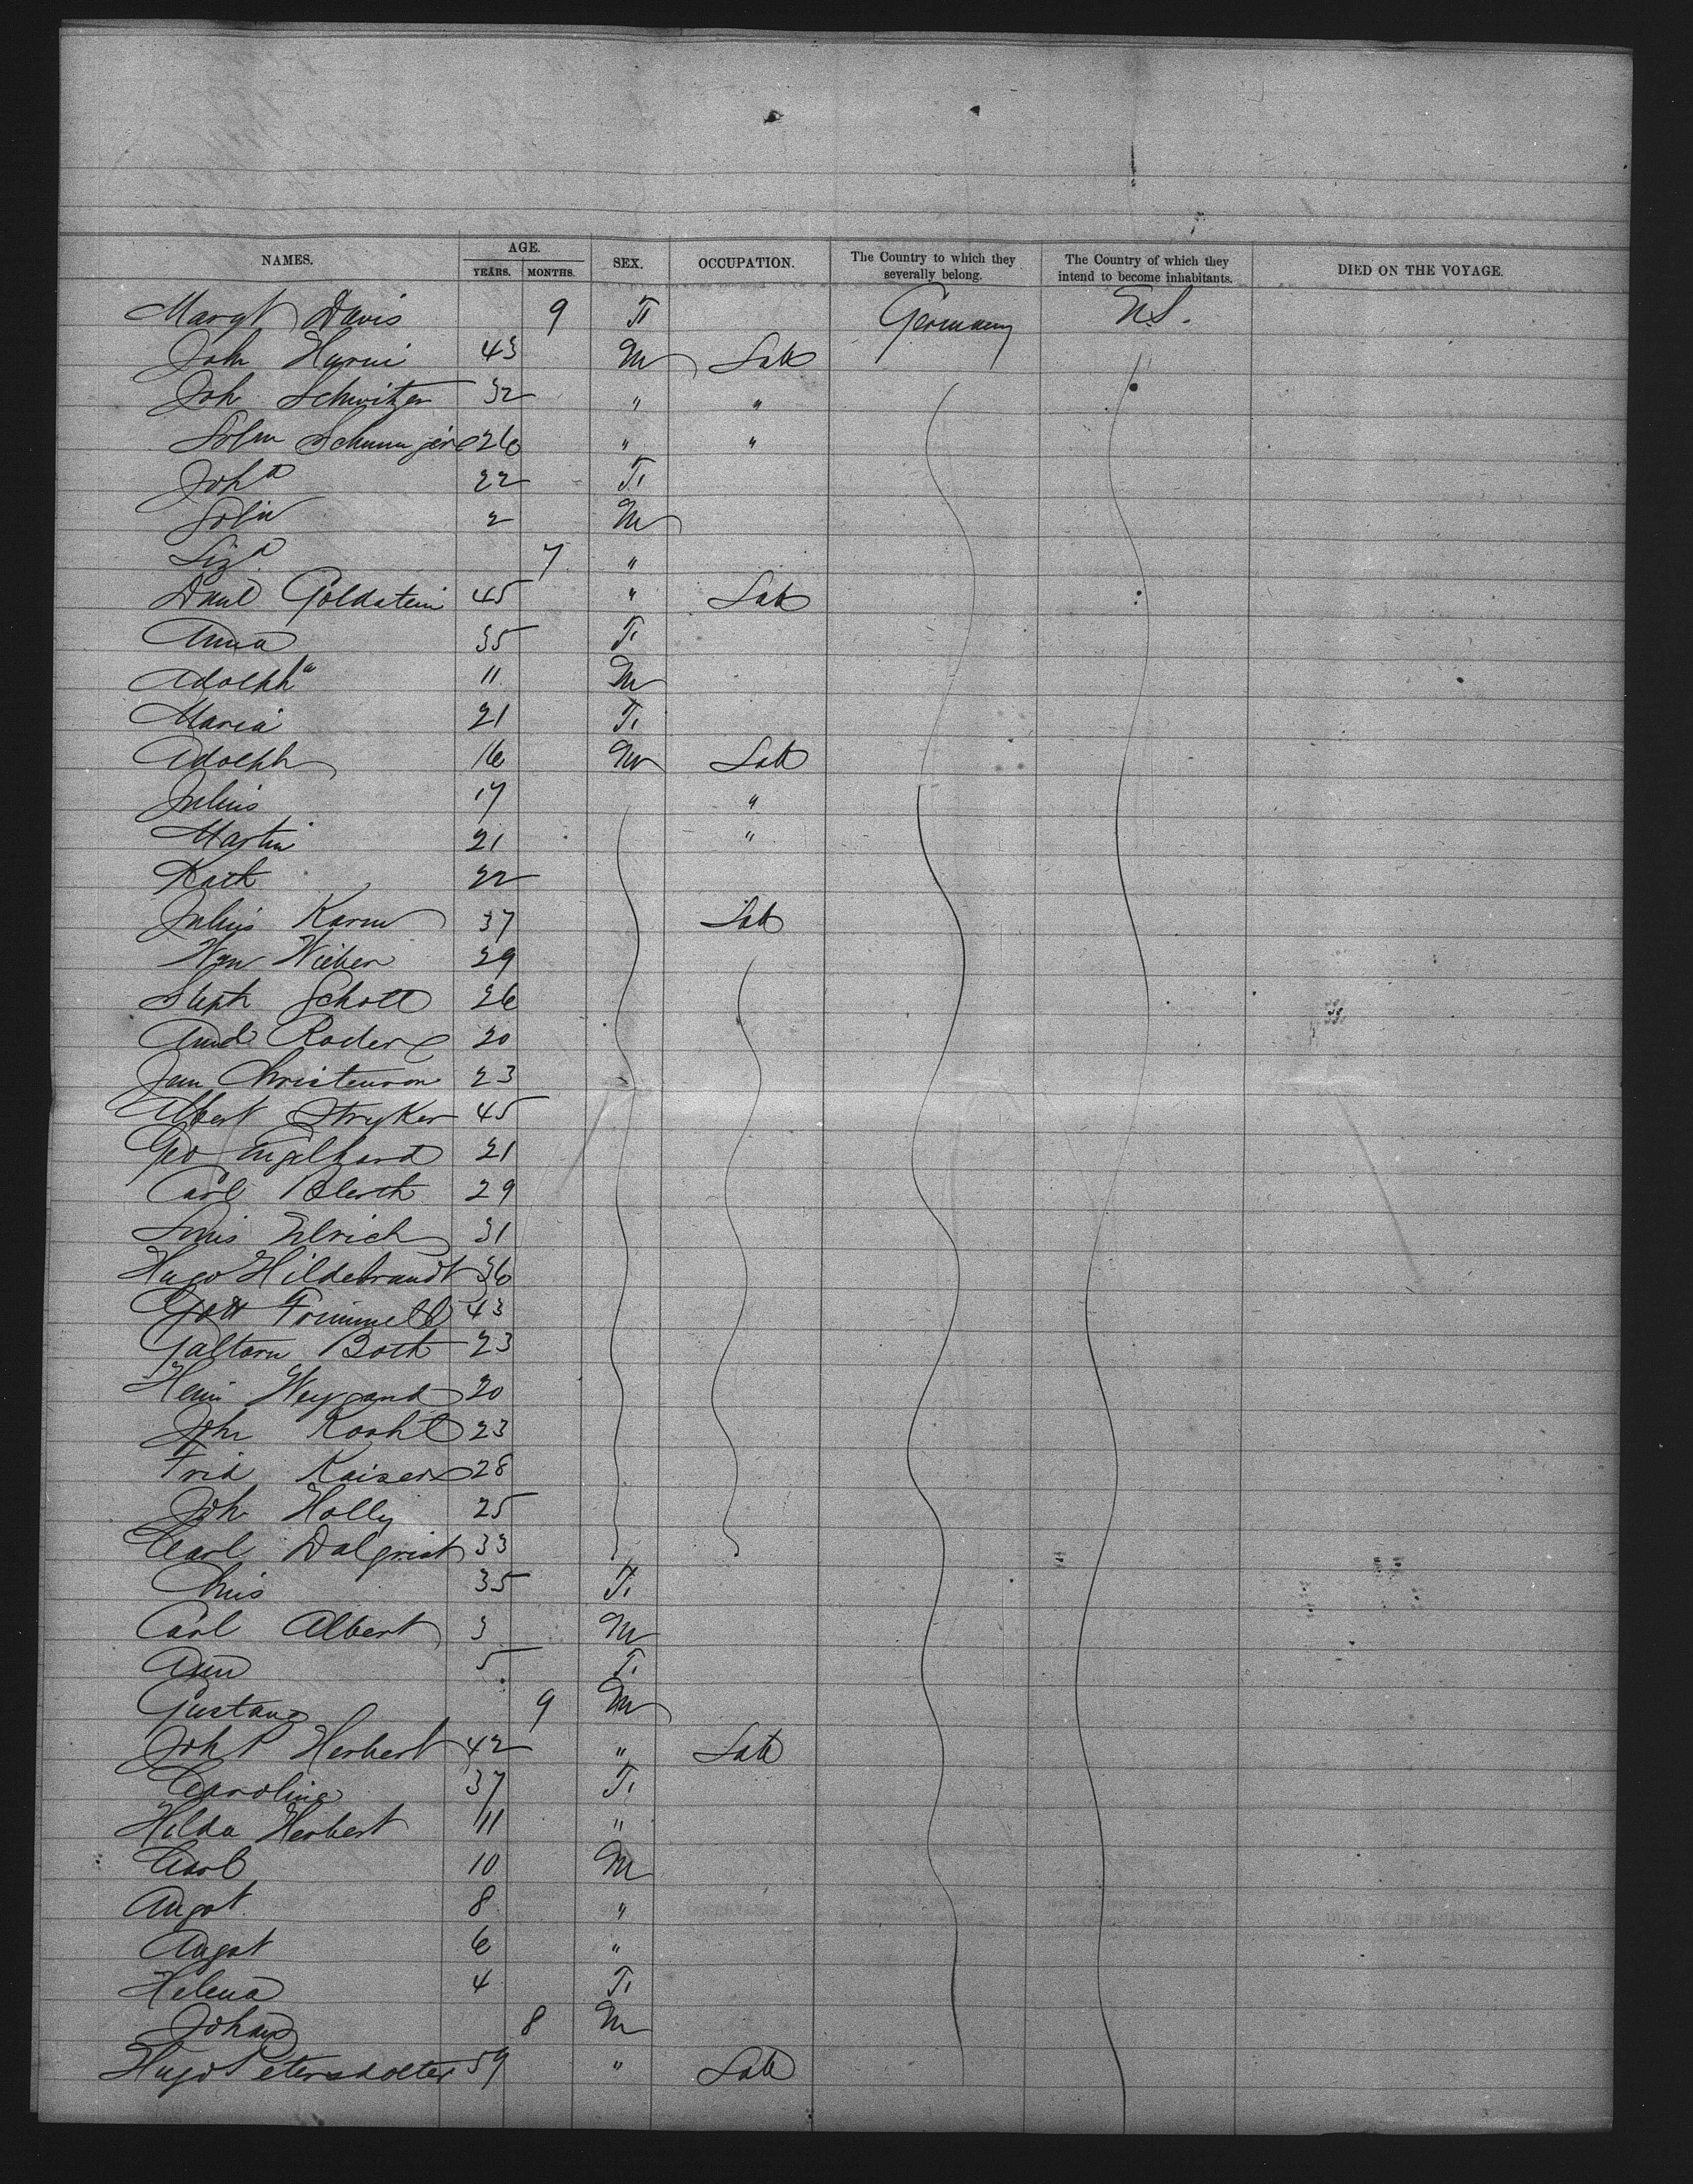 NAMES. AGE. YEARS. MONTHS. SEX. OCCUPATION. The Country to which they severally belong. The Country of which they intend to become inhabitants. DIED ON THE VOYAGE.
Margt Davis 9 F Germany U.S.
John 43 M Lab
Joh Schwitzer 32 " "
26 " "
Joh a 22 F
2 M
Liz a 7 "
Danl Goldstein 45 " Lab
Anna 35 F
Adolph a 11 M
Maria 21 F
Adolph 16 M Lab
Julius 17 "
Martin 21 "
Kath 22
Julius Karm 37 Lab
Wm Wieber 29
Steph Schott 26
Roder 20
Christenson 23
Albert Stryker 45
Geo Engelhard 21
Carl 29
Louis Ulrich 31
Hugo Hildebrandt 36
Gott 43
Both 23
Weygand 20
John 23
Fred Kaiser 28
Joh Holly 25
Carl Dalgrist 33
Chris 35 F
Carl Albert 3 M
Ann 5 F
Gustaug 9 M
Joh P Herbert 42 " Lab
Carolina 37 F
Hilda Herbert 11 "
Carl 10 M
Augst 8 "
Augst 6 "
Helena 4 F
Johan 8 M
Hugo 59 " Lab